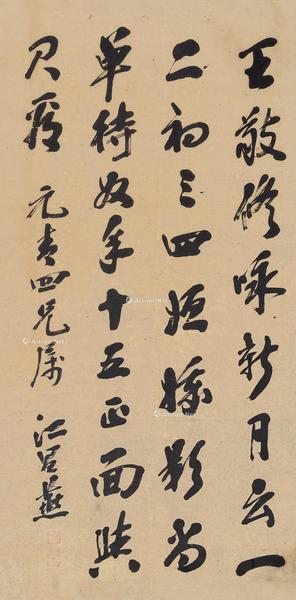 王敬修咏新月云一
二初三四姮娥影尚
单待奴年十五正面與
君看 元 四兄属 江召